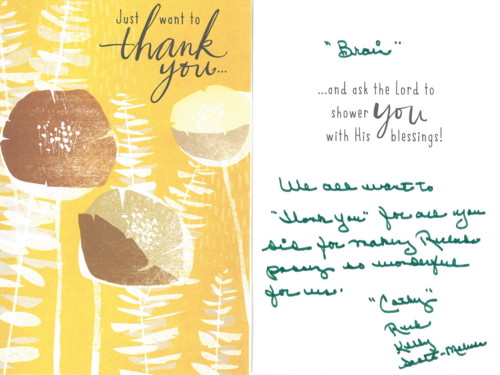 Just want to
thank
you...
"Brain"
...and ask the Lord to
shower you
with His blessings!
We all want to
"thank you" for all you
did for making
passing so wonderful
for us.
"Cathy"
Kelly
Scott-